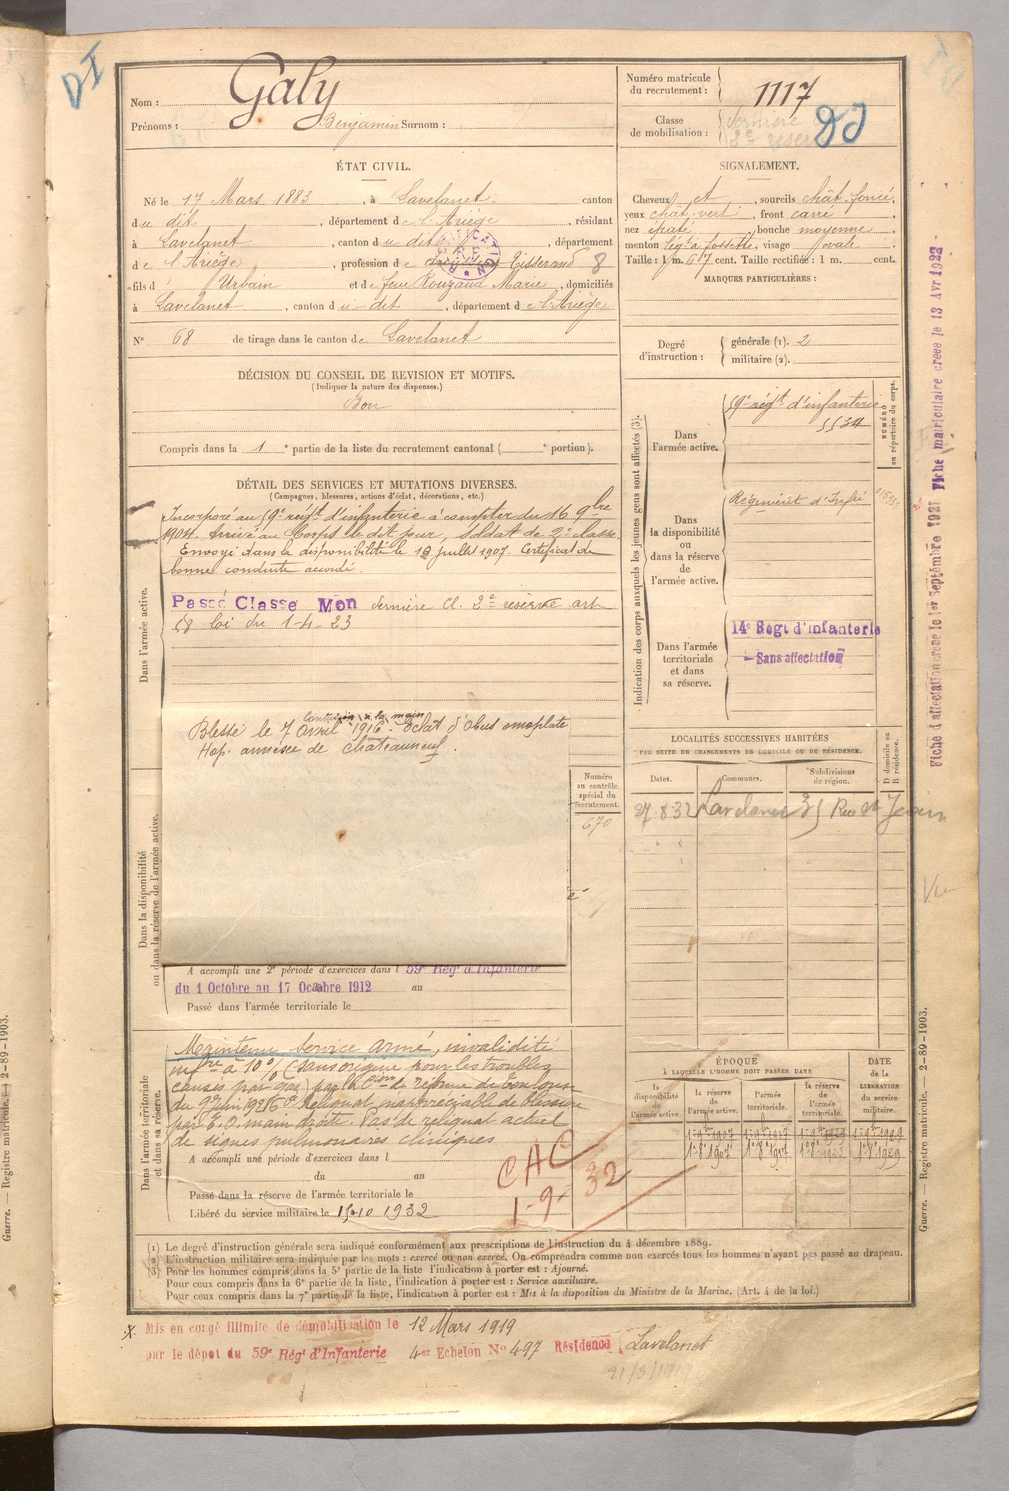 DI
Nom : Galy
Prénoms : Benjamin Surnom :
Numéro matricule du recrutement : 1117
Classe de mobilisation : dernière 2e réserve
DI
ÉTAT CIVIL.
Né le 17 Mars 1883, à Lavelanet canton
du dit, département de l'Ariège, résidant
à Lavelanet, canton du dit, département
de l'Ariège, profession de Tisserand 8
fils d Urbain et de feue Rouzaud Marie, domiciliés
à Lavelanet, canton du dit, département de l'Ariège
No 68 de tirage dans le canton de Lavelanet
DÉCISION DU CONSEIL DE REVISION ET MOTIFS.
(Indiquer la nature des dispenses.)
Bon
Compris dans la 1e partie de la liste du recrutement cantonal ( e portion).
SIGNALEMENT.
Cheveux et, sourcils chât. foncé,
yeux chât. vert, front carré,
nez épaté, bouche moyenne,
menton lég. à fossette, visage ovale
Taille : 1 m. 67 cent. Taille rectifiée : 1 m. cent.
MARQUES PARTICULIÈRES :
Degré d'instruction : générale (1). 2
militaire (2).
Indication des corps auxquels les jeunes gens sont affectés (3).
NUMÉRO au répertoire du corps.
Dans l'armée active.
59e régt d'infanterie
5534
Dans la disponibilité ou dans la réserve de l'armée active.
Régiment d'Infie
Dans l'armée territoriale et dans sa réserve.
14e Régt d'infanterie
Sans affectation
DÉTAIL DES SERVICES ET MUTATIONS DIVERSES.
(Campagnes, blessures, actions d'éclat, décorations, etc.)
Dans l'armée active.
Incorporé au 59e régt d'infanterie à compter du 16 9bre
1904. Arrivé au Corps le dit jour, soldat de 2e classe.
Envoyé dans la disponibilité le 12 Juillet 1907. Certificat de
bonne conduite accordé.
Passé Classe Mon dernière cl. 2e réserve art
58 loi du 1-4-23
contusion à la main
Blessé le 7 avril 1916 - éclat d'obus omoplate
Hop. annexe de Chateauneuf.
Dans la disponibilité ou dans la réserve de l'armée active.
Numéro au contrôle spécial du recrutement.
670
A accompli une 2e période d'exercices dans l 59e Régt d'Infanterie
du 1 Octobre au 17 Octobre 1912 au
Passé dans l'armée territoriale le
LOCALITÉS SUCCESSIVES HABITÉES
PAR SUITE DE CHANGEMENTS DE DOMICILE OU DE RÉSIDENCE.
Dates. Communes. Subdivisions de région. D domicile ou R résidence.
27.8.32 Lavelanet 35 Rue St Jean
Vu
Dans l'armée territoriale et dans sa réserve.
Maintenu service armé, invalidité
infre à 10% (sans origine pour les troubles
causés par gaz) par la Con de réforme de Toulouse
du 9 juin 1926 Reliquat inappréciable de blessure
par E.O. main droite. Pas de reliquat actuel
de signes pulmonaires cliniques
A accompli une période d'exercices dans l
du au
Passé dans la réserve de l'armée territoriale le
Libéré du service militaire le 15-10 1932
CAC
1-9-32
ÉPOQUE
À LAQUELLE L'HOMME DOIT PASSER DANS
DATE de la LIBÉRATION du service militaire.
la disponibilité de l'armée active. la réserve de l'armée active. l'armée territoriale. la réserve de l'armée territoriale.
1er 9bre 1907 1er 9bre 1917 1er 9bre 1929
1er 8bre 1907 1er 8bre 1917 1er 8bre 1929
(1) Le degré d'instruction générale sera indiqué conformément aux prescriptions de l'instruction du 4 décembre 1889.
(2) L'instruction militaire sera indiquée par les mots : exercé ou non exercé. On comprendra comme non exercés tous les hommes n'ayant pas passé au drapeau.
(3) Pour les hommes compris dans la 5e partie de la liste l'indication à porter est : Ajourné.
Pour ceux compris dans la 6e partie de la liste, l'indication à porter est : Service auxiliaire.
Pour ceux compris dans la 7e partie de la liste, l'indication à porter est : Mis à la disposition du Ministre de la Marine. (Art. 4 de la loi.)
X. Mis en congé illimité de démobilisation le 12 Mars 1919
par le dépôt du 59e Régt d'Infanterie 4er Echelon No 497 Résidence Lavelanet
21/3/1919
Fiche d'affectation créée le 1er Septembre 1921 Fiche matriculaire créée le 13 Avr 1922
Guerre. — Registre matricule. — 2-89-1903.
Guerre. — Registre matricule. — 2-89-1903.